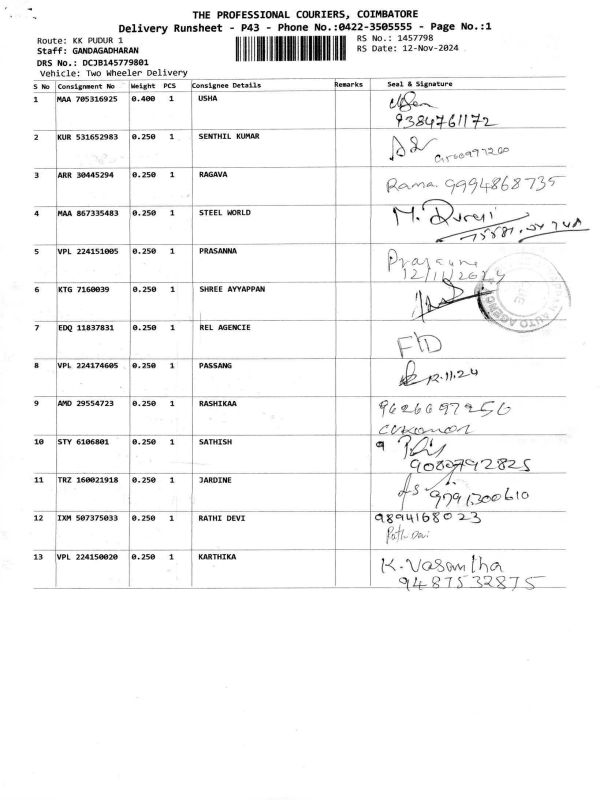 THE PROFESSIONAL COURIERS, COIMBATORE
Delivery Runsheet - P43 - Phone No.:0422-3505555 - Page No.:1
Route: KK PUDUR 1
RS No.: 1457798
Staff: GANDAGADHARAN
RS Date: 12-Nov-2024
DRS No.: DCJB145779801
Vehicle: Two Wheeler Delivery
S No Consignment No Weight PCS Consignee Details Remarks Seal & Signature
1 MAA 705316925 0.400 1 USHA
9384761172
2 KUR 531652983 0.250 1 SENTHIL KUMAR
3 ARR 30445294 0.250 1 RAGAVA
Rama. 9994868735
4 MAA 867335483 0.250 1 STEEL WORLD
5 VPL 224151005 0.250 1 PRASANNA
12/11/2024
6 KTG 7160039 0.250 1 SHREE AYYAPPAN
AUTO AGENC
7 EDQ 11837831 0.250 1 REL AGENCIE
F\D
8 VPL 224174605 0.250 1 PASSANG
12.11.24
9 AMD 29554723 0.250 1 RASHIKAA
9626697256
10 STY 6106801 0.250 1 SATHISH
9080792825
11 TRZ 160021918 0.250 1 JARDINE
9791300610
12 IXM 507375033 0.250 1 RATHI DEVI
9894168023
Rathi Devi
13 VPL 224150020 0.250 1 KARTHIKA
K. Vasantha
9487532875